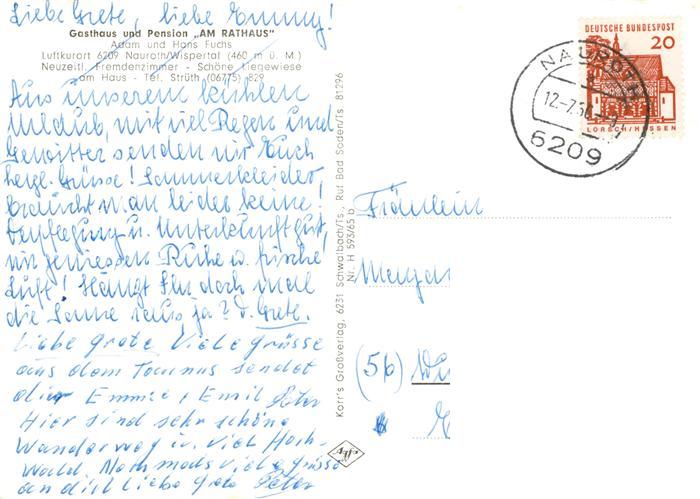 Liebe Grete, liebe Emmy!
Gasthaus und Pension „AM RATHAUS"
Adam und Hans Fuchs
Luftkurort 6209 Nauroth/Wispertal (460 m ü. M.)
Neuzeitl. Fremdenzimmer - Schöne Liegewiese
am Haus - Tel. Strüth (06775) 829
Aus unserem kühlen
Urlaub, mit viel Regen und
Gewitter senden wir Euch
herzl. Grüsse! Sommerkleider,
braucht man leider keine.
Verpflegung u. Unterkunft gut,
wir geniessen Ruhe u. frische
Luft! Hängt Ihr doch mal
die Sonne raus ja? d. Grete.
Liebe Grete Viele Grüsse
aus dem Taunus sendet
dir Emmie, Emil Peter
Hier sind sehr schöne
Wanderweg u. viel Hoch-
Wald. Nochmals viele Grüsse
an dich Liebe Grete Peter
Korr's Großverlag, 6231 Schwalbach/Ts., Ruf Bad Soden/Ts. 81296
Nr. H 593/65 b
DEUTSCHE BUNDESPOST
20
LORSCH/HESSEN
NAUROTH
12.-7.66
6209
Fräulein
(5b)